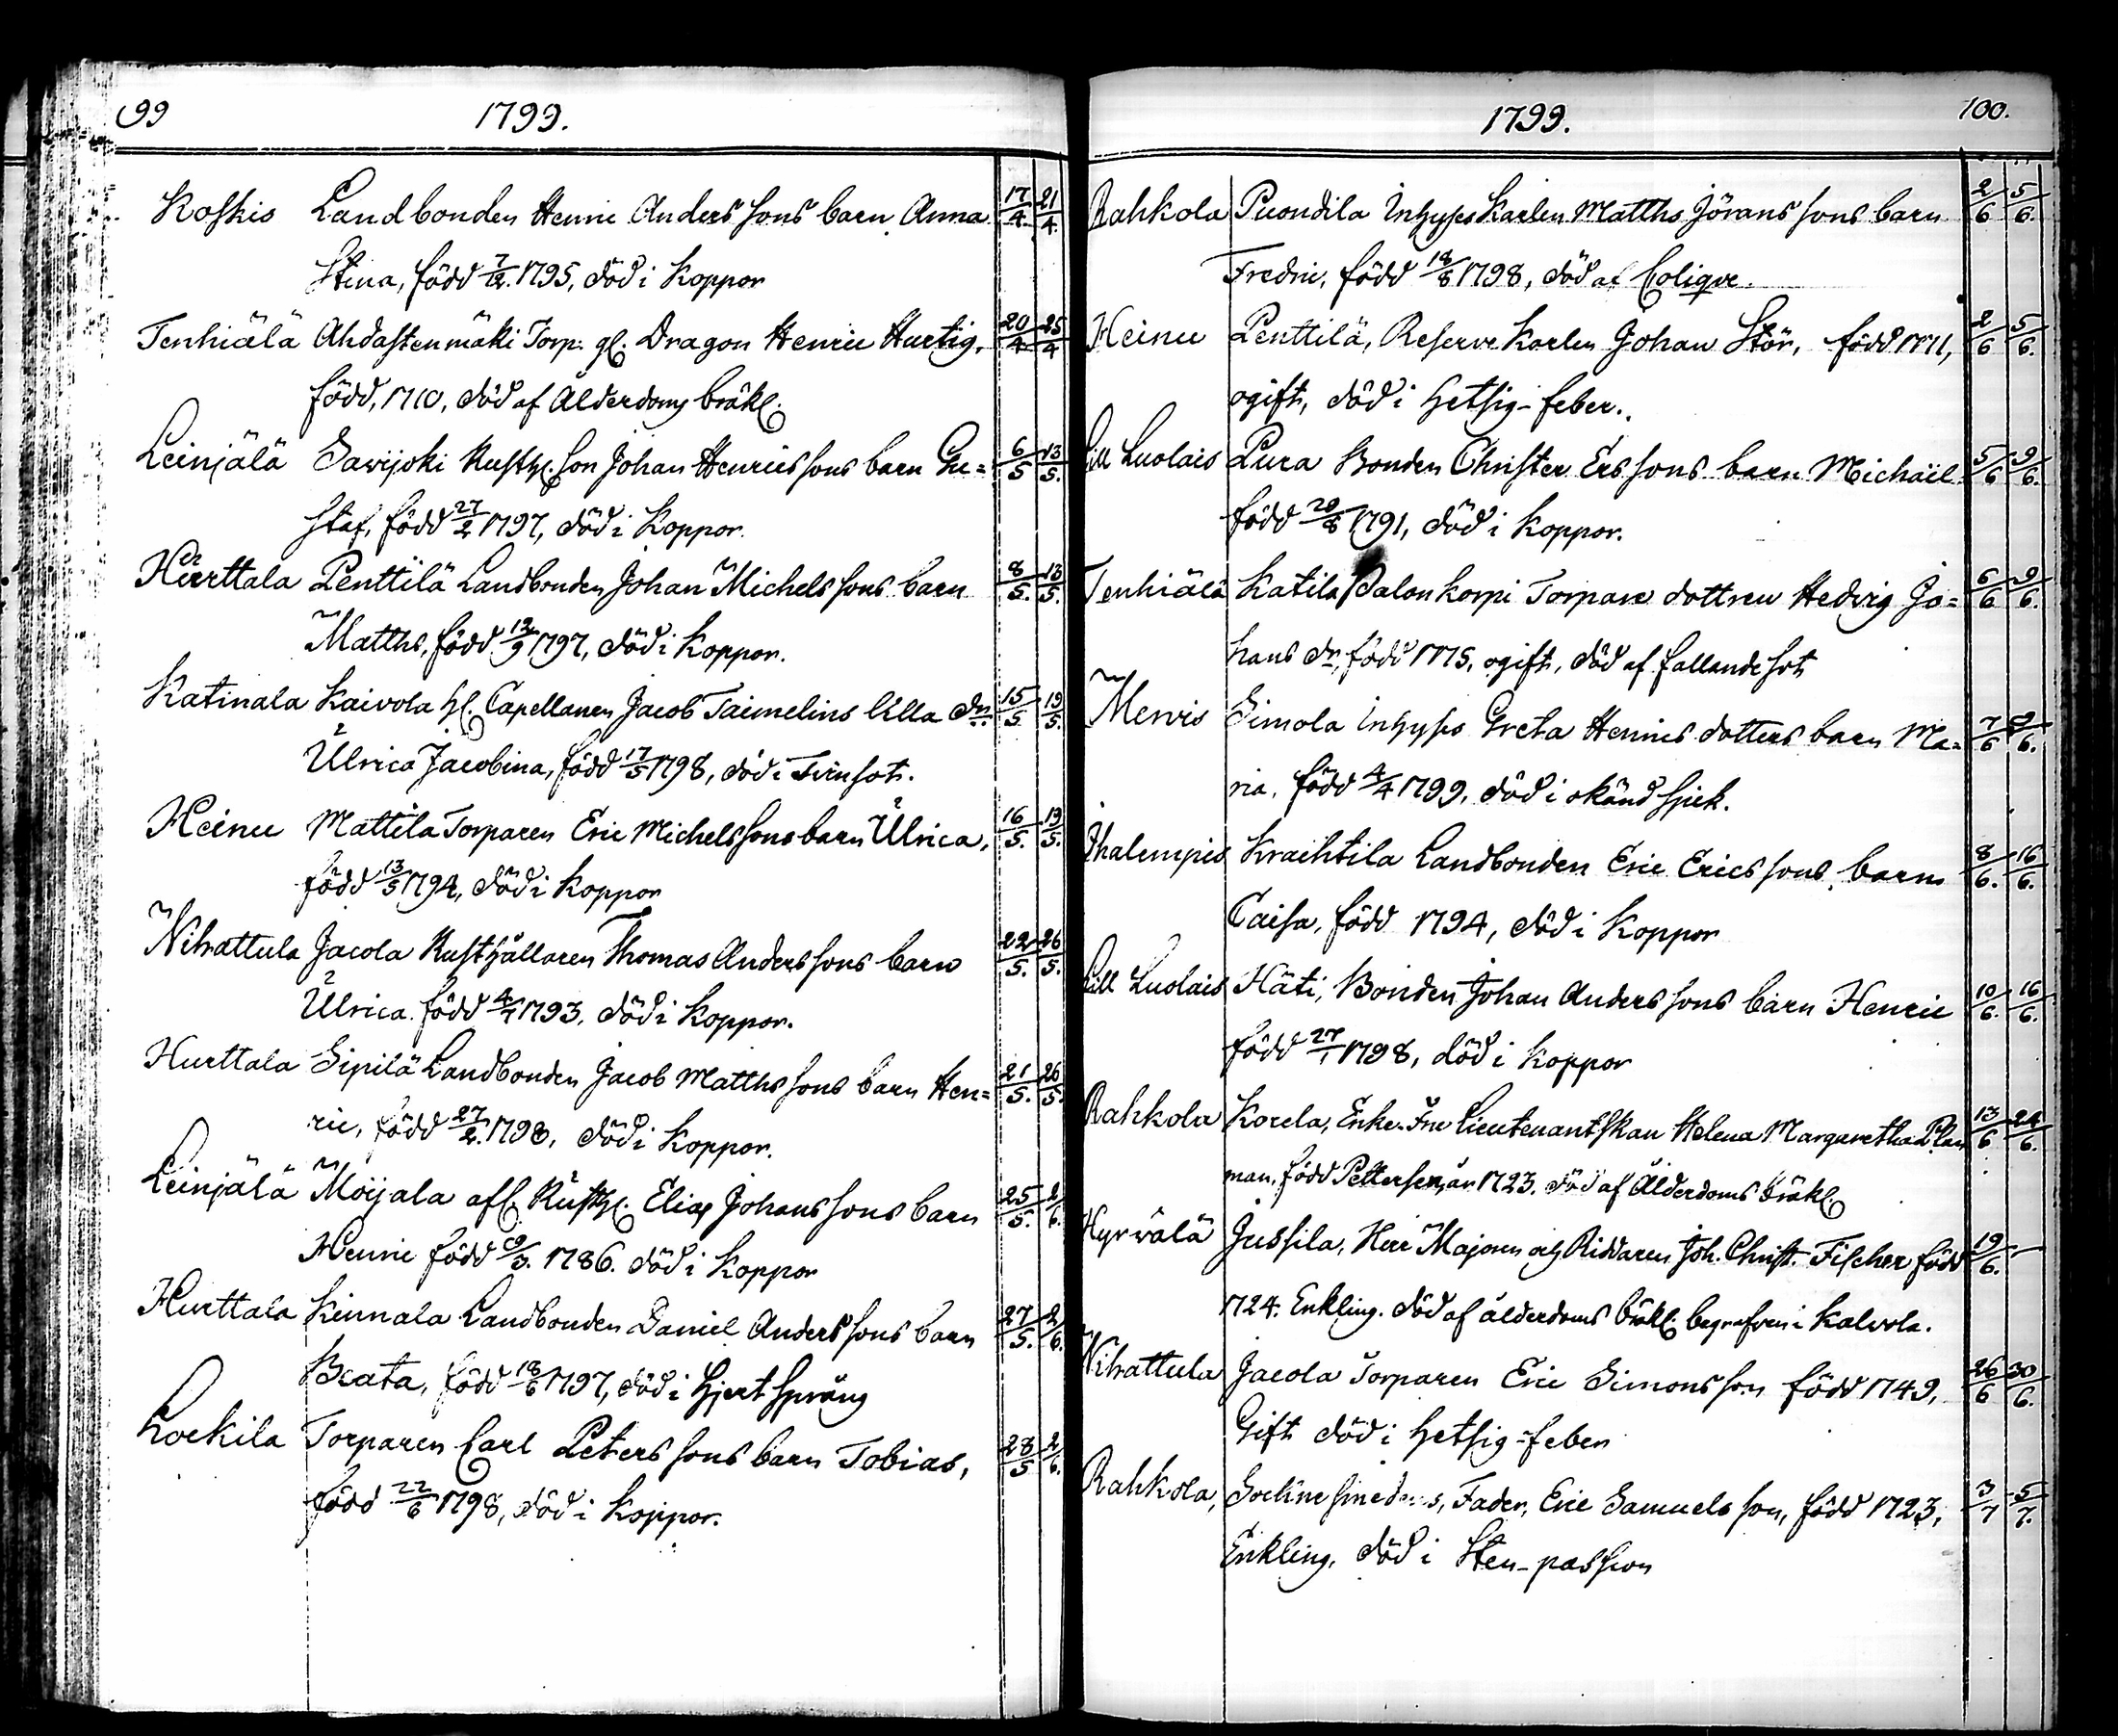 99 1799.
Koskis Landbonden Henric Anders sons barn Anna 17/4. 21/4
Stina, född 7/12. 1795, död i Koppor
Tenhiälä Ahdastenmäki Torp. gl. Dragon Henric Hurtig, 20/4 25/4
född, 1710, död af Ålderdoms bräkl.
Leinjälä Sawijoki Rusth. son Johan Henrics sons barn Gu= 6/5 13/5.
staf, född 27/2 1797, död i Koppor.
Hurttala Penttilä Landbonden Johan Michels sons barn 8/5. 13/5.
Matths, född 12/9 1797, död i Koppor.
Katinala Kaivola H. Capellanen Jacob Taimelins lilla dr. 15/5. 19/5.
Ulrica Jacobina, född 17/5 1798, död i Tvinsot.
Heinu Mattila Torparen Eric Michels sons barn Ulrica, 16/5. 19/5.
född 13/5 1794, död i Koppor
Nihattula Jacola Rusthållaren Thomas Anders sons barn 22/5. 26/5.
Ulrica född 4/7 1793, död i Koppor.
Hurttala Sipilä Landbonden Jacob Matths sons barn Hen= 21/5. 26/5.
ric, född 27/2. 1798, död i Koppor.
Leinjälä Moijala afl. Rusth. Elias Johans sons barn 25/5. 2/6.
Henric född 9/3. 1786. död i Koppor
Hurttala Kinnala Landbonden Daniel Anders sons barn 27/5. 2/6.
Beata, född 18/6 1797, död i Hjertspräng
Lockila Torparen Carl Peters sons barn Tobias, 28/5 2/6.
född 22/6 1798, död i Koppor.
1799. 100.
Rahkola Puondila Inhyses Karlen Matths Jörans sons barn 2/6 5/6.
Fredric, född 18/8 1798, död af Colique.
Heinu Penttilä, Reserve Karlen Johan Stör, född 1771, 2/6 5/6.
ogift, död i Hetsig-feber.
Lill Luolais Pura Bonden Christer Ers sons barn Michaël 5/6 9/6.
född 20/8 1791, död i Koppor.
Tenhiälä Katila Salonkorpi Torpare dottren Hedvig Jo= 6/6 9/6.
hans dr, född 1775, ogift, död af fallande sot
Mervis Simola Inhyses Greta Henrics dotters barn Ma= 7/6 9/6.
ria, född 4/4 1799, död i okänd sjuk.
Ihalempis Kraihtila Landbonden Eric Erics sons barn 8/6. 16/6.
Caisa, född 1794, död i Koppor
Lill Luolais Häti, Bonden Johan Anders sons barn Henric 10/6. 16/6.
född 27/1 1798, död i Koppor
Rahkola Korela, Enke. Fru Lieutenantskan Helena Margaretha Plan 13/6 24/6.
man, född Pettersen, år 1723. död af Ålderdoms bräkl.
Hyrvälä Jussila, Herr Majoren och Riddaren Joh. Christ. Fischer född 19/6. —
1724. Enkling. död af ålderdoms bräkl. begrafven i Kalvola.
Nihattula Jacola Torparen Eric Simons son född 1749, 26/6 30/6.
Gift död i Hetsig-feber
Rahkola, Sockne Fader, Eric Samuels son, född 1723, 3/7 5/7.
Enkling, död i Sten-passion